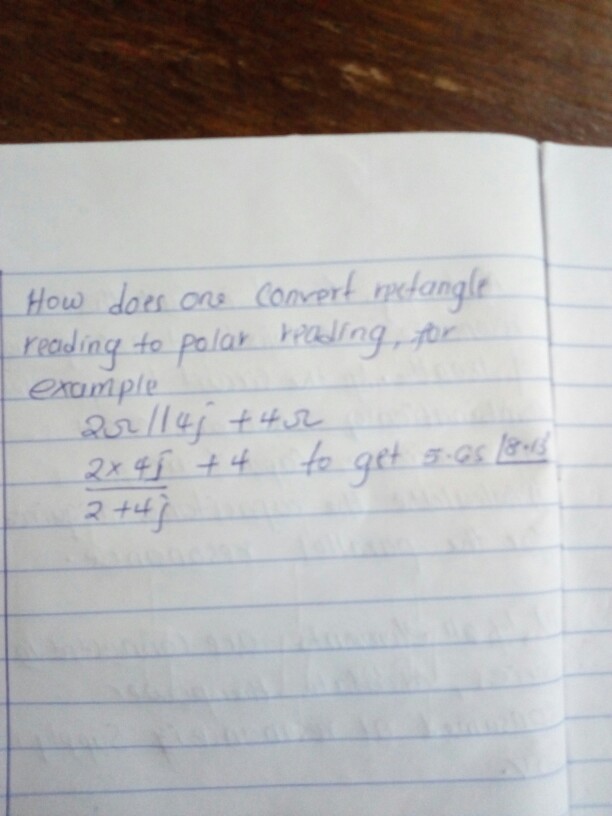 How does one convert rectangle
reading to polar reading, for
example
2Ω//4j + 4Ω
2×4j + 4 to get 5.65 /8.13
2+4j